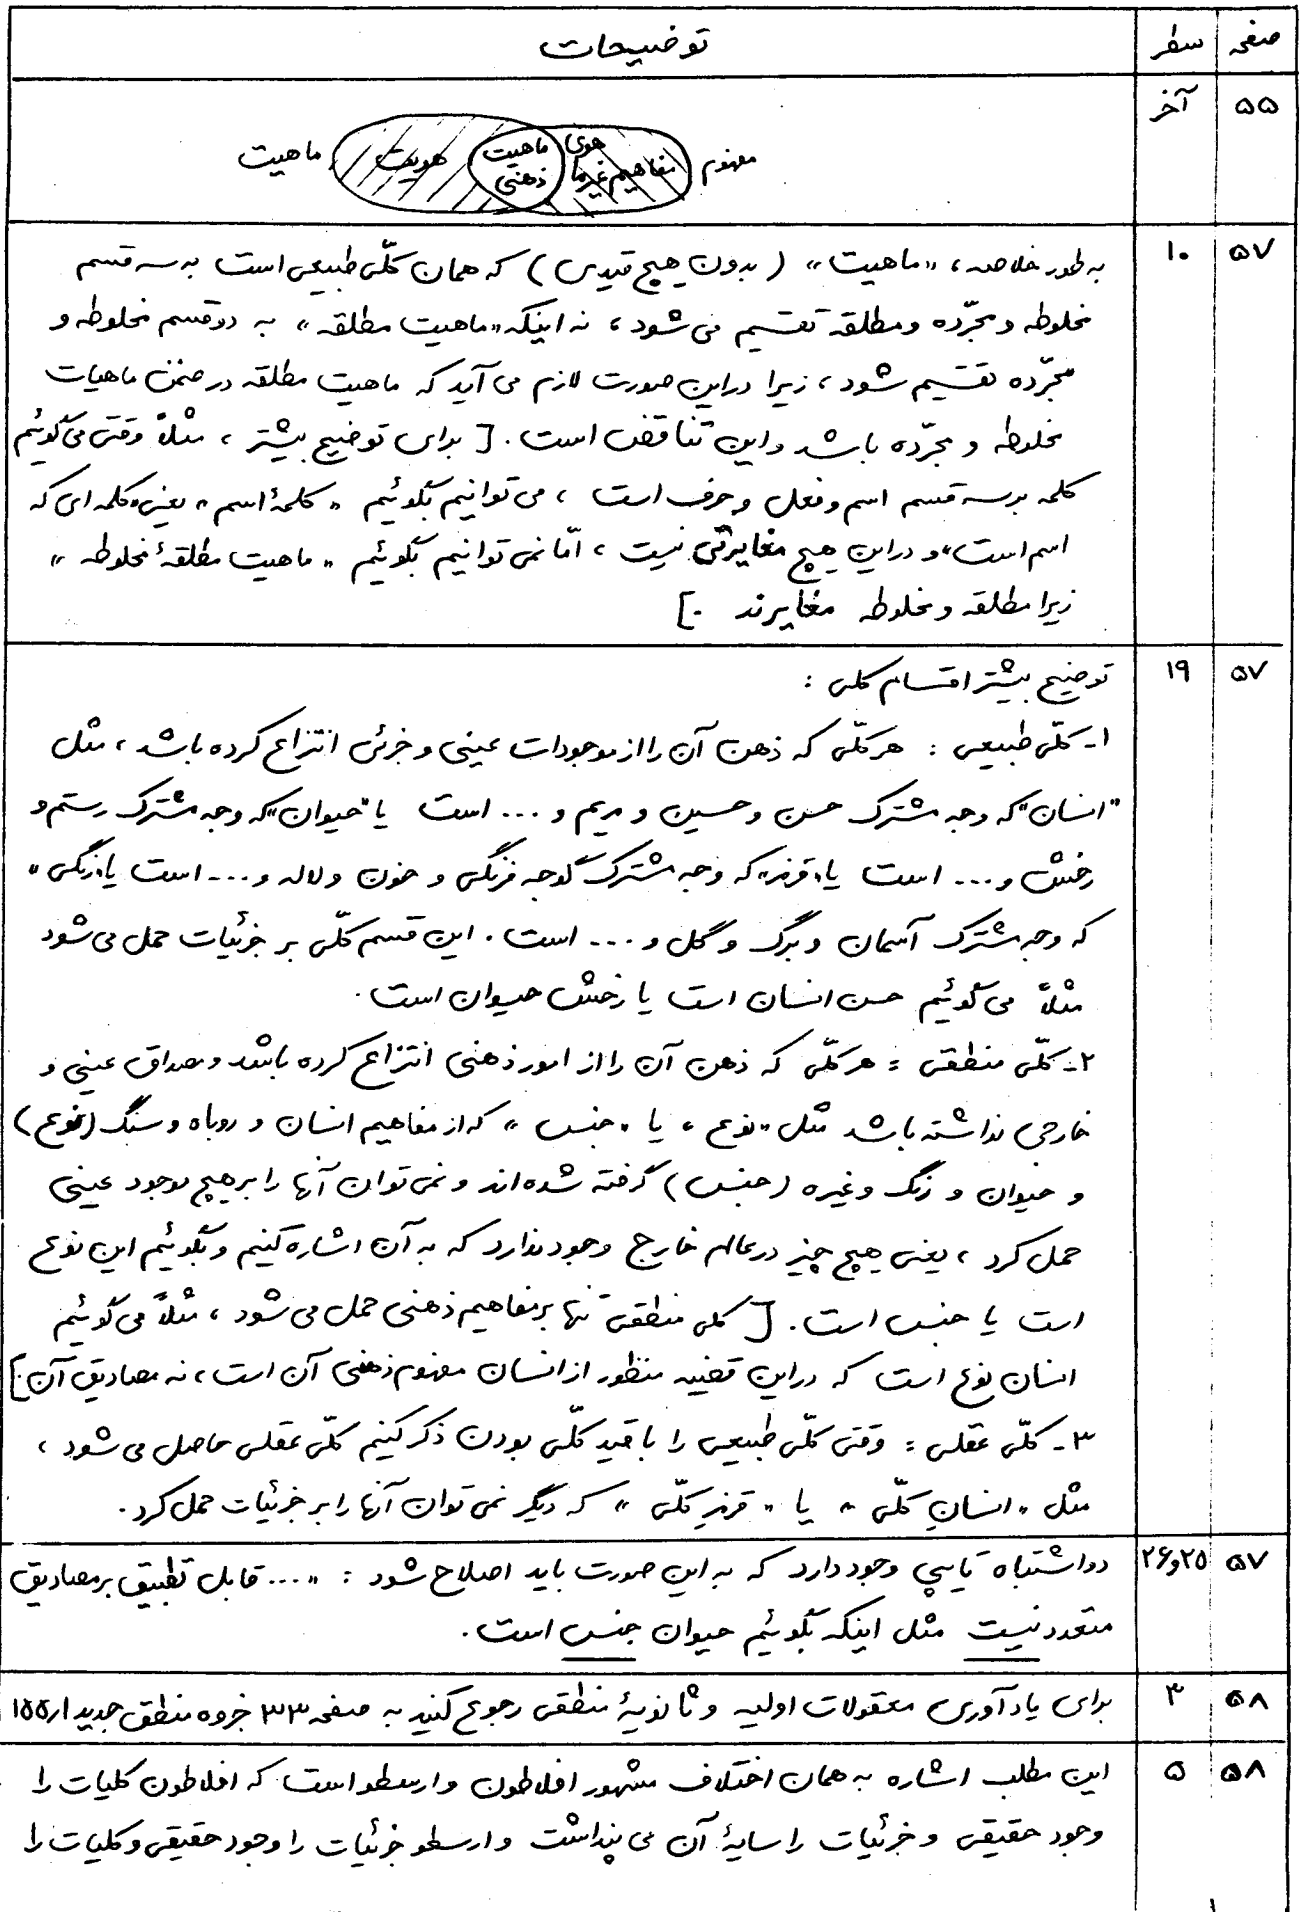 صفحه سطر توضیحات
۵۵ آخر
مفهوم مفاهیم غیرماهوی ماهیت ذهنی هویت ماهیت
۵۷ ۱۰ به طور خلاصه، «ماهیت» (بدون هیچ قیدی) که همان کلّی طبیعی است به سه قسم
مخلوطه و مجرّده و مطلقه تقسیم می شود، نه اینکه «ماهیت مطلقه» به دو قسم مخلوطه و
مجرّده تقسیم شود، زیرا در این صورت لازم می آید که ماهیت مطلقه در ضمن ماهیات
مخلوطه و مجرّده باشد و این تناقض است. [برای توضیح بیشتر، مثلاً وقتی می گوئیم
کلمه بر سه قسم اسم و فعل و حرف است، می توانیم بگوئیم «کلمهٔ اسم» یعنی «کلمه ای که
اسم است» و در این هیچ مغایرتی نیست، امّا نمی توانیم بگوئیم «ماهیت مطلقهٔ مخلوطه»
زیرا مطلقه و مخلوطه مغایرند.]
۵۷ ۱۹ توضیح بیشتر اقسام کلی:
۱- کلّی طبیعی: هر کلّی که ذهن آن را از موجودات عینی و جزئی انتزاع کرده باشد، مثل
"انسان" که وجه مشترک حسن و حسین و مریم و ... است یا "حیوان" که وجه مشترک رستم و
رخش و ... است یا «قرمز» که وجه مشترک گوجه فرنگی و خون و لاله و ... است یا «رنگی»
که وجه مشترک آسمان و برگ و گل و ... است. این قسم کلّی بر جزئیات حمل می شود
مثلاً می گوئیم حسن انسان است یا رخش حیوان است.
۲- کلّی منطقی: هر کلّی که ذهن آن را از امور ذهنی انتزاع کرده باشد و مصداق عینی و
خارجی نداشته باشد مثل «نوع» یا «جنس» که از مفاهیم انسان و روباه و سنگ (نوع)
و حیوان و رنگ و غیره (جنس) گرفته شده اند و نمی توان آنها را بر هیچ موجود عینی
حمل کرد، یعنی هیچ چیز در عالم خارج وجود ندارد که به آن اشاره کنیم و بگوئیم این نوع
است یا جنس است. [کلی منطقی تنها بر مفاهیم ذهنی حمل می شود، مثلاً می گوئیم
انسان نوع است که در این قضیه منظور از انسان مفهوم ذهنی آن است، نه مصادیق آن.]
۳- کلّی عقلی: وقتی کلّی طبیعی را با قید کلّی بودن ذکر کنیم کلّی عقلی حاصل می شود،
مثل «انسانِ کلّی» یا «قرمزِ کلّی» که دیگر نمی توان آنها را بر جزئیات حمل کرد.
۵۷ ۲۵و۲۶ دو اشتباه تایپی وجود دارد که به این صورت باید اصلاح شود: «... قابل تطبیق بر مصادیق
متعدد نیست مثل اینکه بگوئیم حیوان جنس است.
۵۸ ۳ برای یادآوری معقولات اولیه و ثانویهٔ منطقی رجوع کنید به صفحه ۳۳ جزوه منطق جدید
۵۸ ۵ این مطلب اشاره به همان اختلاف مشهور افلاطون و ارسطو است که افلاطون کلیات را
وجود حقیقی و جزئیات را سایهٔ آن می پنداشت و ارسطو جزئیات را وجود حقیقی و کلیات را